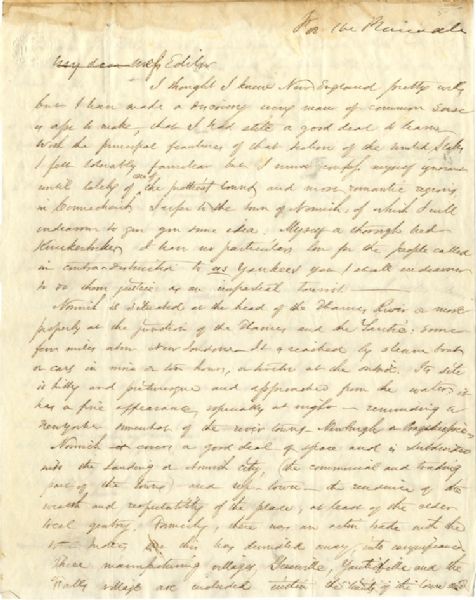 For the
My dear Mr Editor
I thought I knew New England pretty well
but I have made a discovery every man of common sense
is apt to make, that I had still a good deal to learn.
With the principal features of that section of the United States
I felt tolerably familiar but I must confess myself ignorant
until lately of one of the prettiest towns and most romantic regions
in Connecticut. I refer to the town of Norwich, of which I will
endeavor to give you some idea. Myself a thorough bred
Knickerbocker I have no particular love for the people called
in contradistinction to us Yankees yet I shall endeavor
to do them justice as an impartial tourist —
Norwich is situated at the head of the Thames River or more
properly at the junction of the Thames and the Yantic. Some
few miles above New London — It is reached by steam boat
or cars in nine or ten hours, or shorter at the outside. Its site
is hilly and picturesque and approached from the water it
has a fine appearance, especially at night — reminding a
New Yorker somewhat of the river towns Newburgh or Poughkeepsie
Norwich covers a good deal of space and is subdivided
into the Landing or Norwich City, (the commercial and trading
part of the town) and up-town — the residence of the
wealth and respectability of the place, at least of the older
local gentry. Formerly, there was an active trade with the
this has dwindled away, into insignificance
Three manufacturing villages, Greeneville, Yantic and the
Falls village are included within the limits of the town and